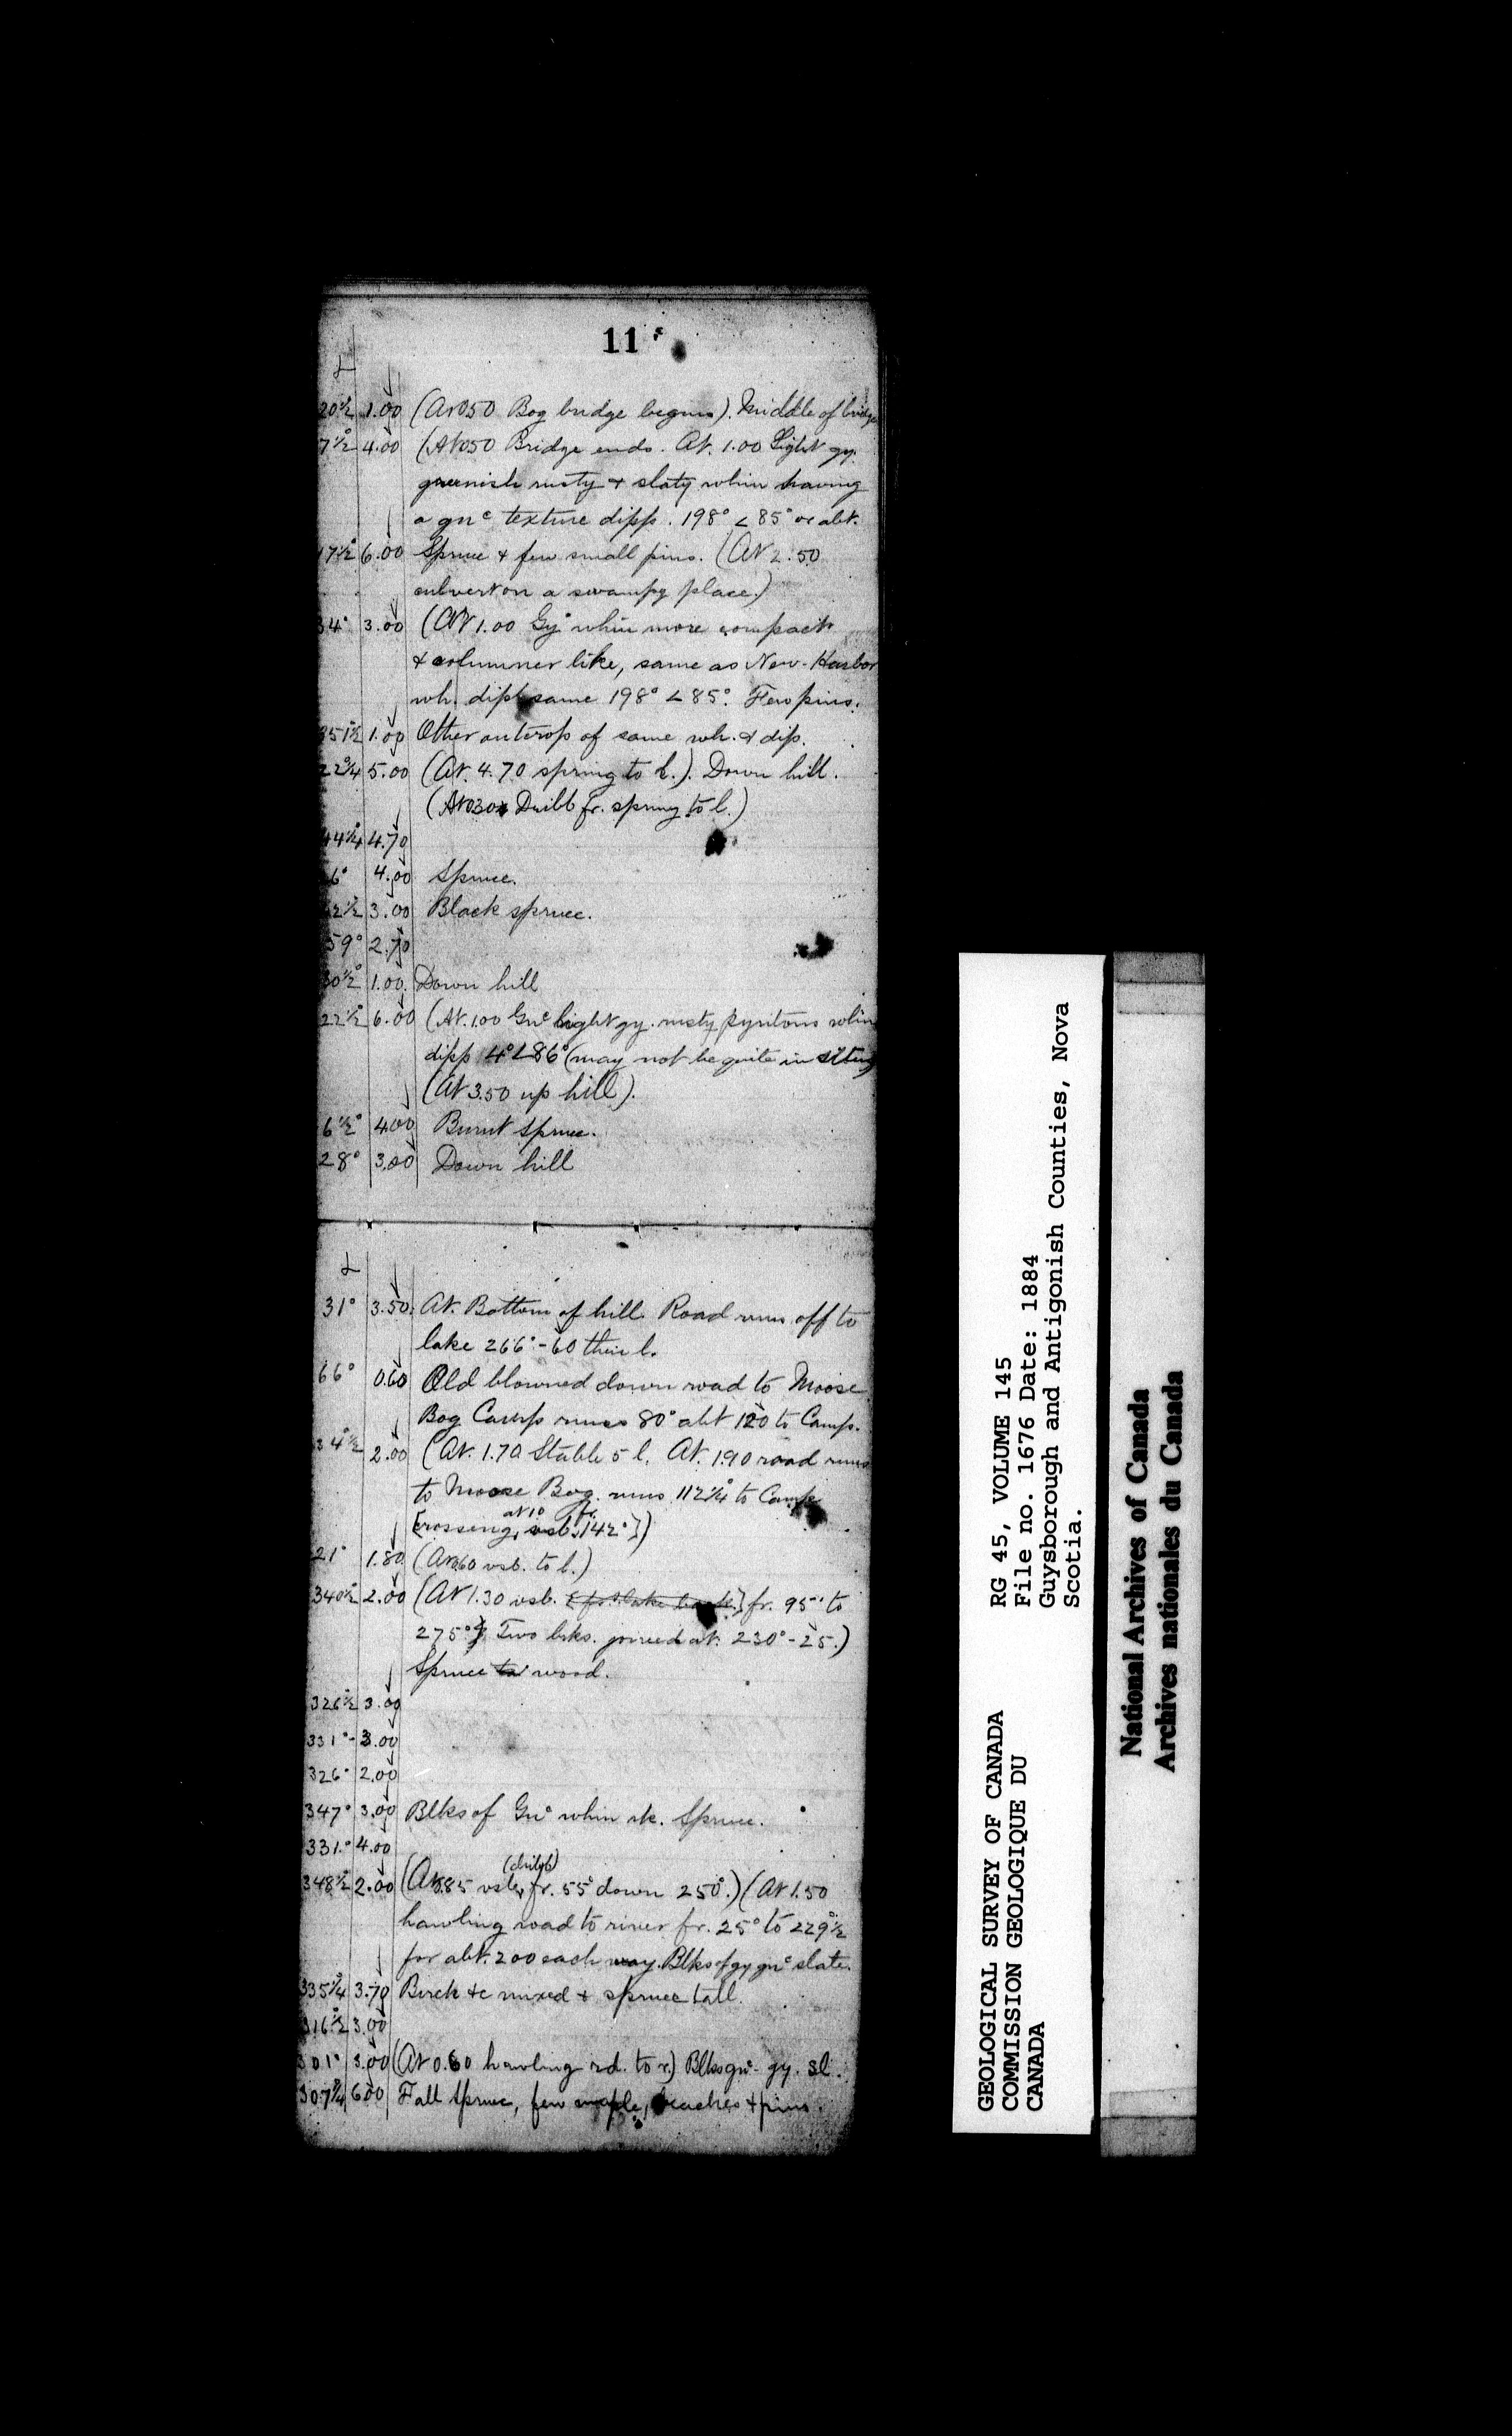 11
20½° 1.00 (At 050 Bog bridge begins). Middle of bridge
7½° 4.00 (At 050 Bridge ends. At. 1.00 Light gy.
greenish rusty & slaty whin having
a gnc texture dipp. 198° < 85° or abt.
17½° 6.00 Spruce & few small pins. (At 2.50
culvert on a swampy place.)
34° 3.00 (At 1.00 Gy. whin more compact
& columner like, same as New-Harbor
wh. dipp same 198° < 85°. Few pins.
351½ 1.00 Other outcrop of same wh. & dip.
22¼° 5.00 (At. 4.70 spring to l.). Down hill.
(At 030 Duibb fr. spring to l.)
44¼° 4.70
6° 4.00 Spruce.
2½ 3.00 Black spruce.
59° 2.70
30½° 1.00 Down hill
22½° 6.00 (At. 1.00 Gnc light gy. rusty pyritous whin
dipp 4° < 86° (may not be quite in situ)
(At 3.50 up hill).
6½° 4.00 Burnt spruce.
28° 3.00 Down hill
31° 3.50 At. Bottom of hill. Road runs off to
lake 266° - 60 then l.
66° 0.60 Old blowned down road to Moose
Bog Camp runs 80° abt 120 to Camp.
34½° 2.00 (At. 1.70 Stable 5 l. At. 1.90 road runs
to Moose Bog. runs 112¼° to Camp
at 10 fr.
[crossing, vsb. 142°])
21° 1.80 (At 060 vsb. to l.)
340½° 2.00 (At 1.30 vsb. {fr. lake back} fr. 95° to
275° Two bks. joined at. 230° - 25.)
Spruce wood.
326½° 3.00
331° - 3.00
326° 2.00
347° 3.00 Blks of Gnc whin rk. Spruce.
331° 4.00
(duibb)
348½° 2.00 (At 0.85 vsb. fr. 55° down 250°.) (At 1.50
hawling road to river fr. 25° to 229½°
for abt. 200 each way. Blks of gy gnc slate.
335¼° 3.70 Birch &c mixed & spruce tall.
316½° 3.00
301° 3.00 (At 0.60 hawling rd. to r.) Blks gnc - gy. sl.
307¼° 6.00 Tall spruce, few maple, beaches & pins.
GEOLOGICAL SURVEY OF CANADA
COMMISSION GEOLOGIQUE DU
CANADA
RG 45, VOLUME 145
File no. 1676 Date: 1884
Guysborough and Antigonish Counties, Nova
Scotia.
National Archives of Canada
Archives nationales du Canada